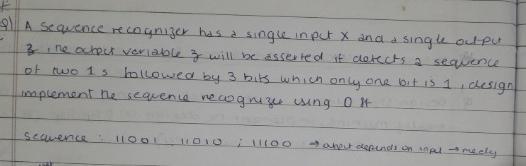 9) A sequence recognizer has a single input X and a single output
z, The output variable z will be asserted if detects a sequence
of two 1s followed by 3 bits which only one bit is 1, design
implement the sequence recognizer using D ff
sequence : 11001, 11010 ; 11100 → output depends on input → mealy